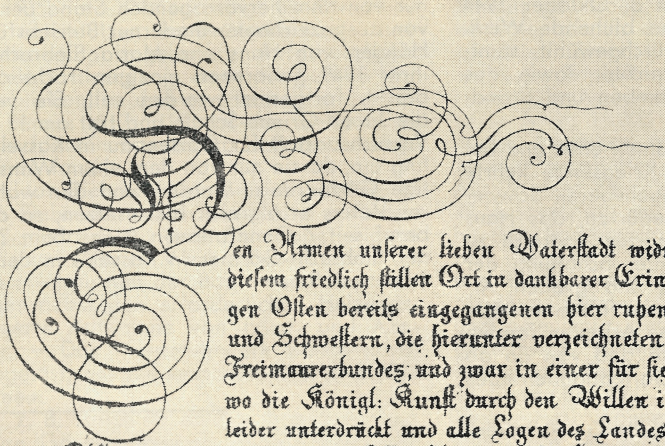 Den Armen unserer lieben Vaterstadt wid
diesem friedlich stillen Ort in dankbarer Erin
gen Osten bereits eingegangenen hier ruhen
und Schwestern, die hierunter verzeichneten
Freimaurerbundes, und zwar in einer für sie
wo die Königl: Kunst durch den Willen i
leider unterdrückt und alle Logen des Landes